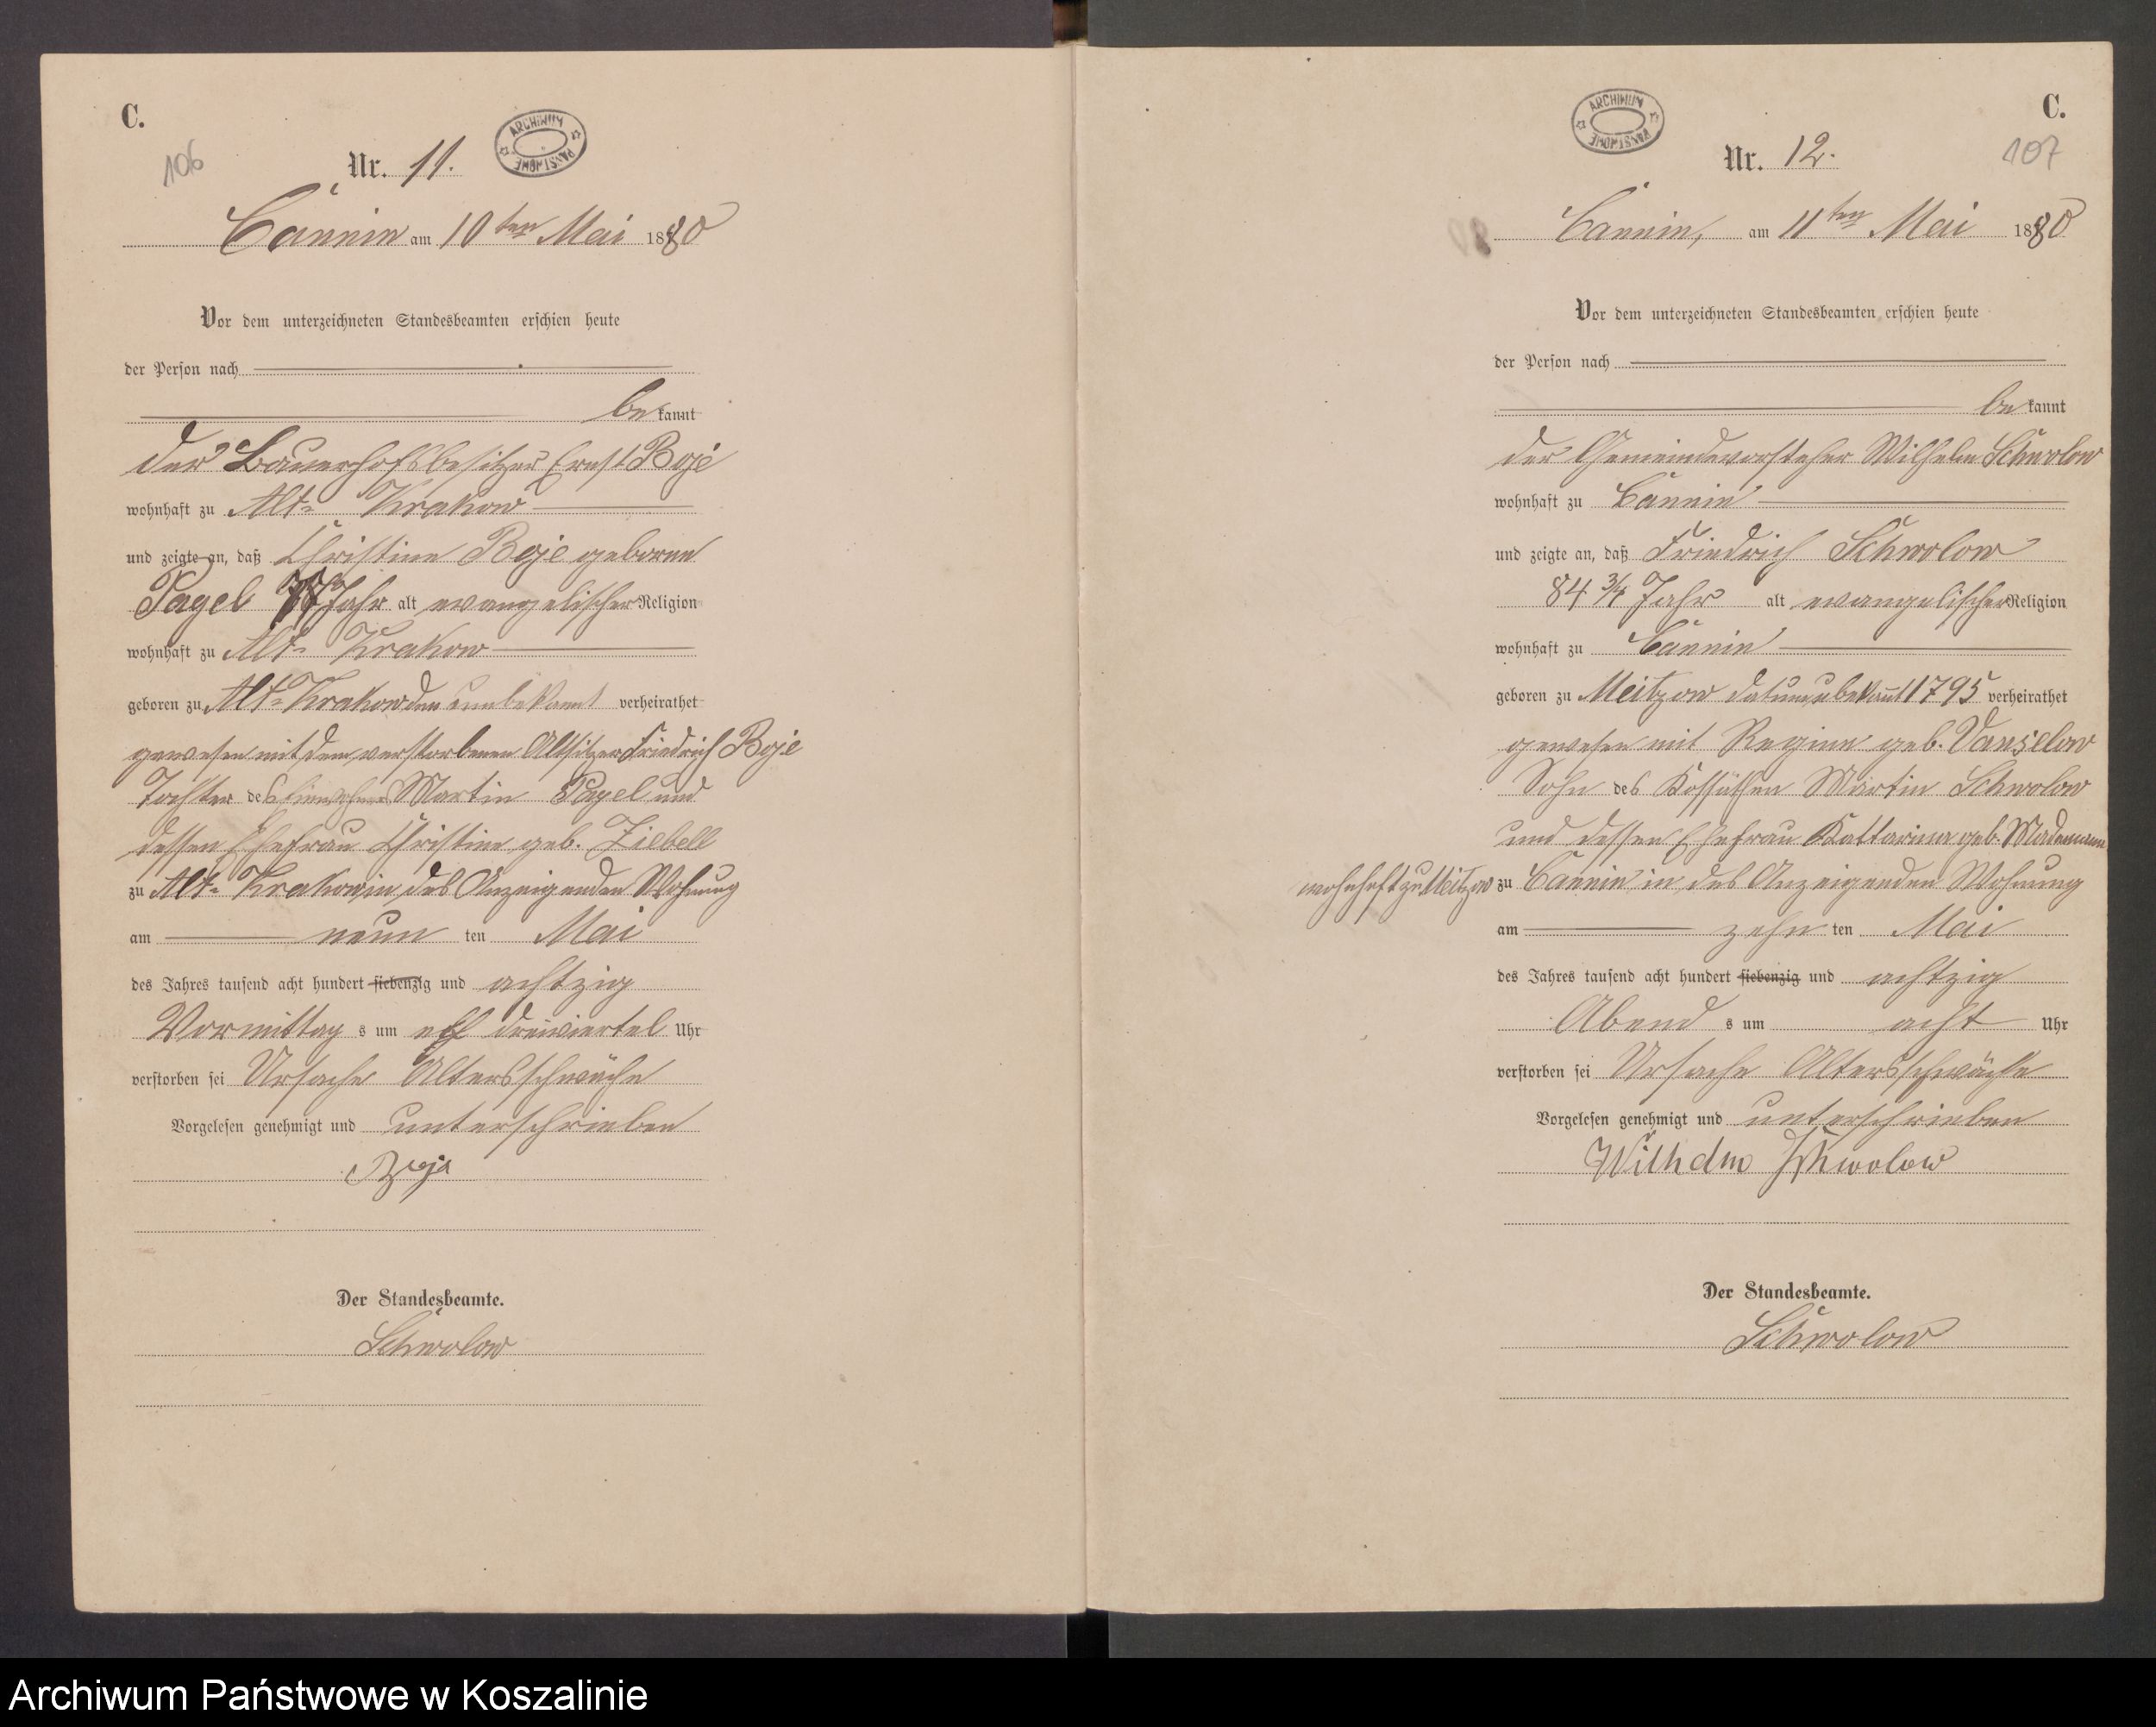 C.
106
Nr. 11.
ARCHIWUM PAŃSTWOWE
Cannin am 10ten Mai 1880
Vor dem unterzeichneten Standesbeamten erschien heute
der Person nach
bekannt
der Bauerhofsbesitzer Ernst Boje
wohnhaft zu Alt- Krakow
und zeigte an, daß Christine Boje geborne
Pagel Jahr alt evangelischer Religion
wohnhaft zu Alt- Krakow
geboren zu Alt- Krakow den unbekannt verheirathet
gewesen mit dem verstorbenen Altsitzer Friedrich Boje
Tochter des Einwohners Martin Pagel und
dessen Ehefrau Christine geb. Ziebell
zu Alt- Krakow in des Anzeigenden Wohnung
am neun ten Mai
des Jahres tausend acht hundert siebenzig und achtzig
Vormittag s um elf dreiviertel Uhr
verstorben sei Ursache Altersschwäche
Vorgelesen genehmigt und unterschrieben
Boje
Der Standesbeamte.
Schwolow
C.
107
Nr. 12.
ARCHIWUM PAŃSTWOWE
Cannin, am 11ten Mai 1880
Vor dem unterzeichneten Standesbeamten erschien heute
der Person nach
bekannt
der Gemeindevorsteher Wilhelm Schwolow
wohnhaft zu Cannin
und zeigte an, daß Friedrich Schwolow
84 3/4 Jahr alt evangelischer Religion
wohnhaft zu Cannin
geboren zu Meitzow datum unbekannt 1795 verheirathet
gewesen mit Regine geb. Vanselow
Sohn des Kossäthen Martin Schwolow
und dessen Ehefrau Kattarina geb.
wohnhaft zu Meitzow zu Cannin in des Anzeigenden Wohnung
am zehn ten Mai
des Jahres tausend acht hundert siebenzig und achtzig
Abend s um acht Uhr
verstorben sei Ursache Altersschwäche
Vorgelesen genehmigt und unterschrieben
Wilhelm Schwolow
Der Standesbeamte.
Schwolow
Archiwum Państwowe w Koszalinie